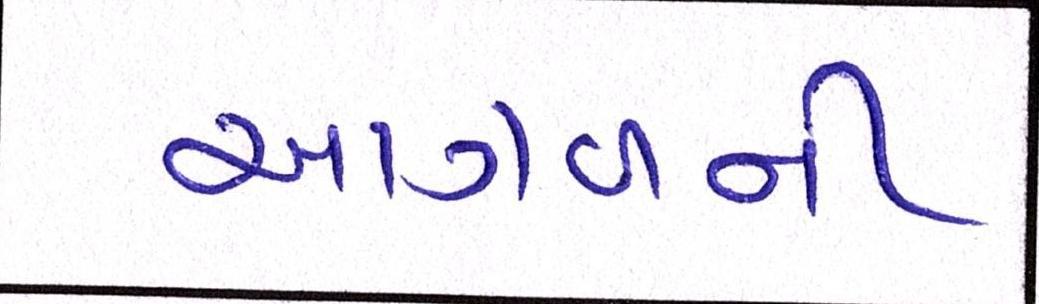 આગળની